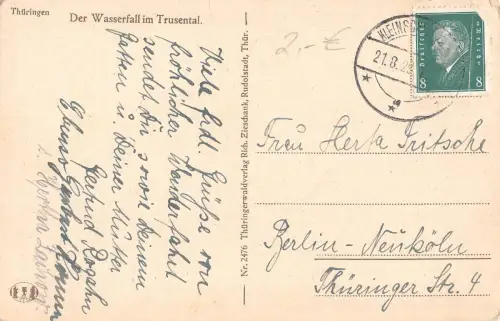 Thüringen
Der Wasserfall im Trusental.
Viele hdl. Grüße von
fröhlicher Wanderfahrt
sendet Dir sowie Deinem
Gatten u. Deiner Mutter
Gerhard
Ebenso
Nr. 2476 Thüringerwaldverlag Rich. Zieschank, Rudolstadt, Thür.
2,- €
21.8.
Deutsches Reich
8 8
Frau Herta Fritsche
Berlin-Neuköln
Thüringer Str. 4